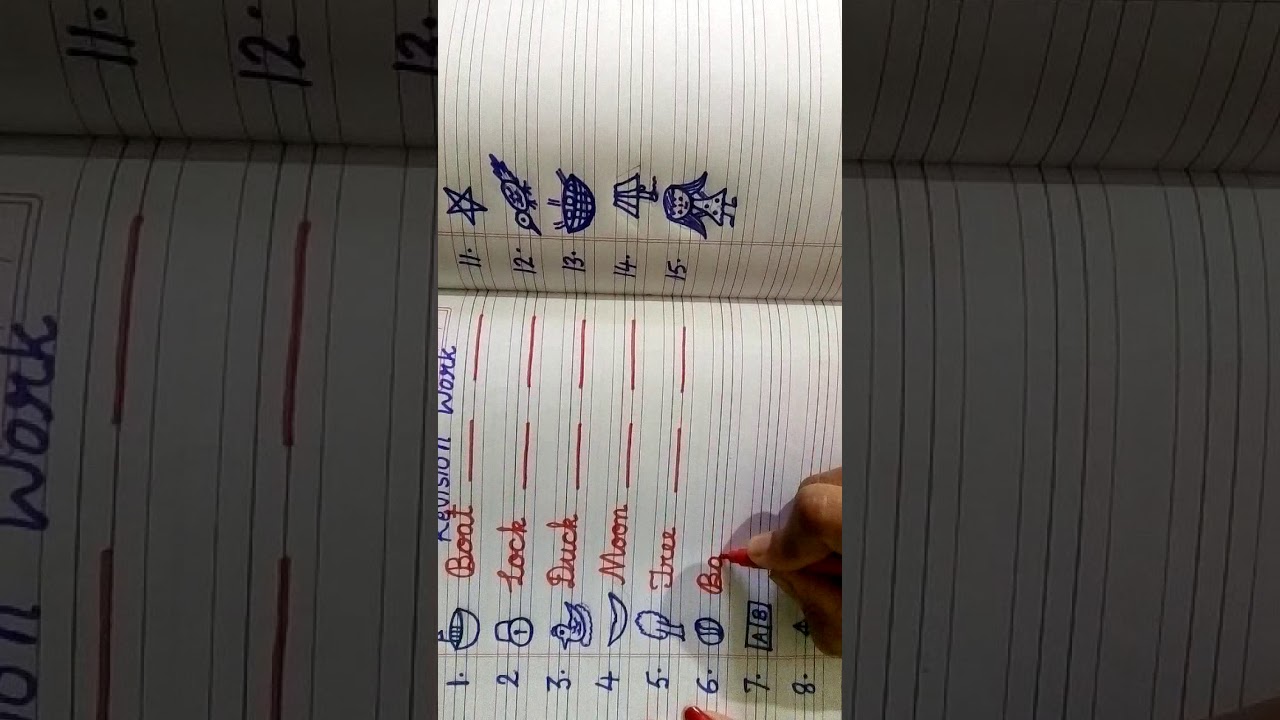 Revision Work
1. Boat
2 Lock
3. Duck
4 Moon
5. Tree
6. Ba
7. A B
8.
11.
12.
13.
14.
15.